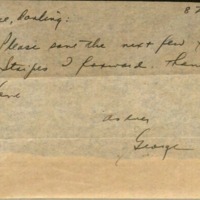 8 2
, Darling:
Please save the next few
Stripes I forward. Than
as ever
George